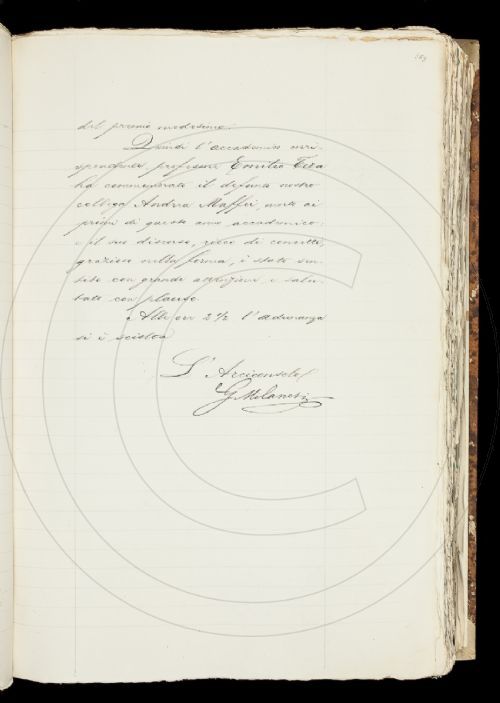 del premio medesimo.
Quindi l'accademico corri-
spondente professore Emilio Teza
ha commemorato il defunto nostro
collega Andrea Maffei, morto ai
primi di questo anno accademico;
e il suo discorso, ricco di concetti,
grazioso nella forma, è stato sen-
tito con grande attenzione e salu-
tato con plauso.
Alle ore 2 1/2 l'adunanza
si è sciolta
L'Arciconsolo
G Milanesi